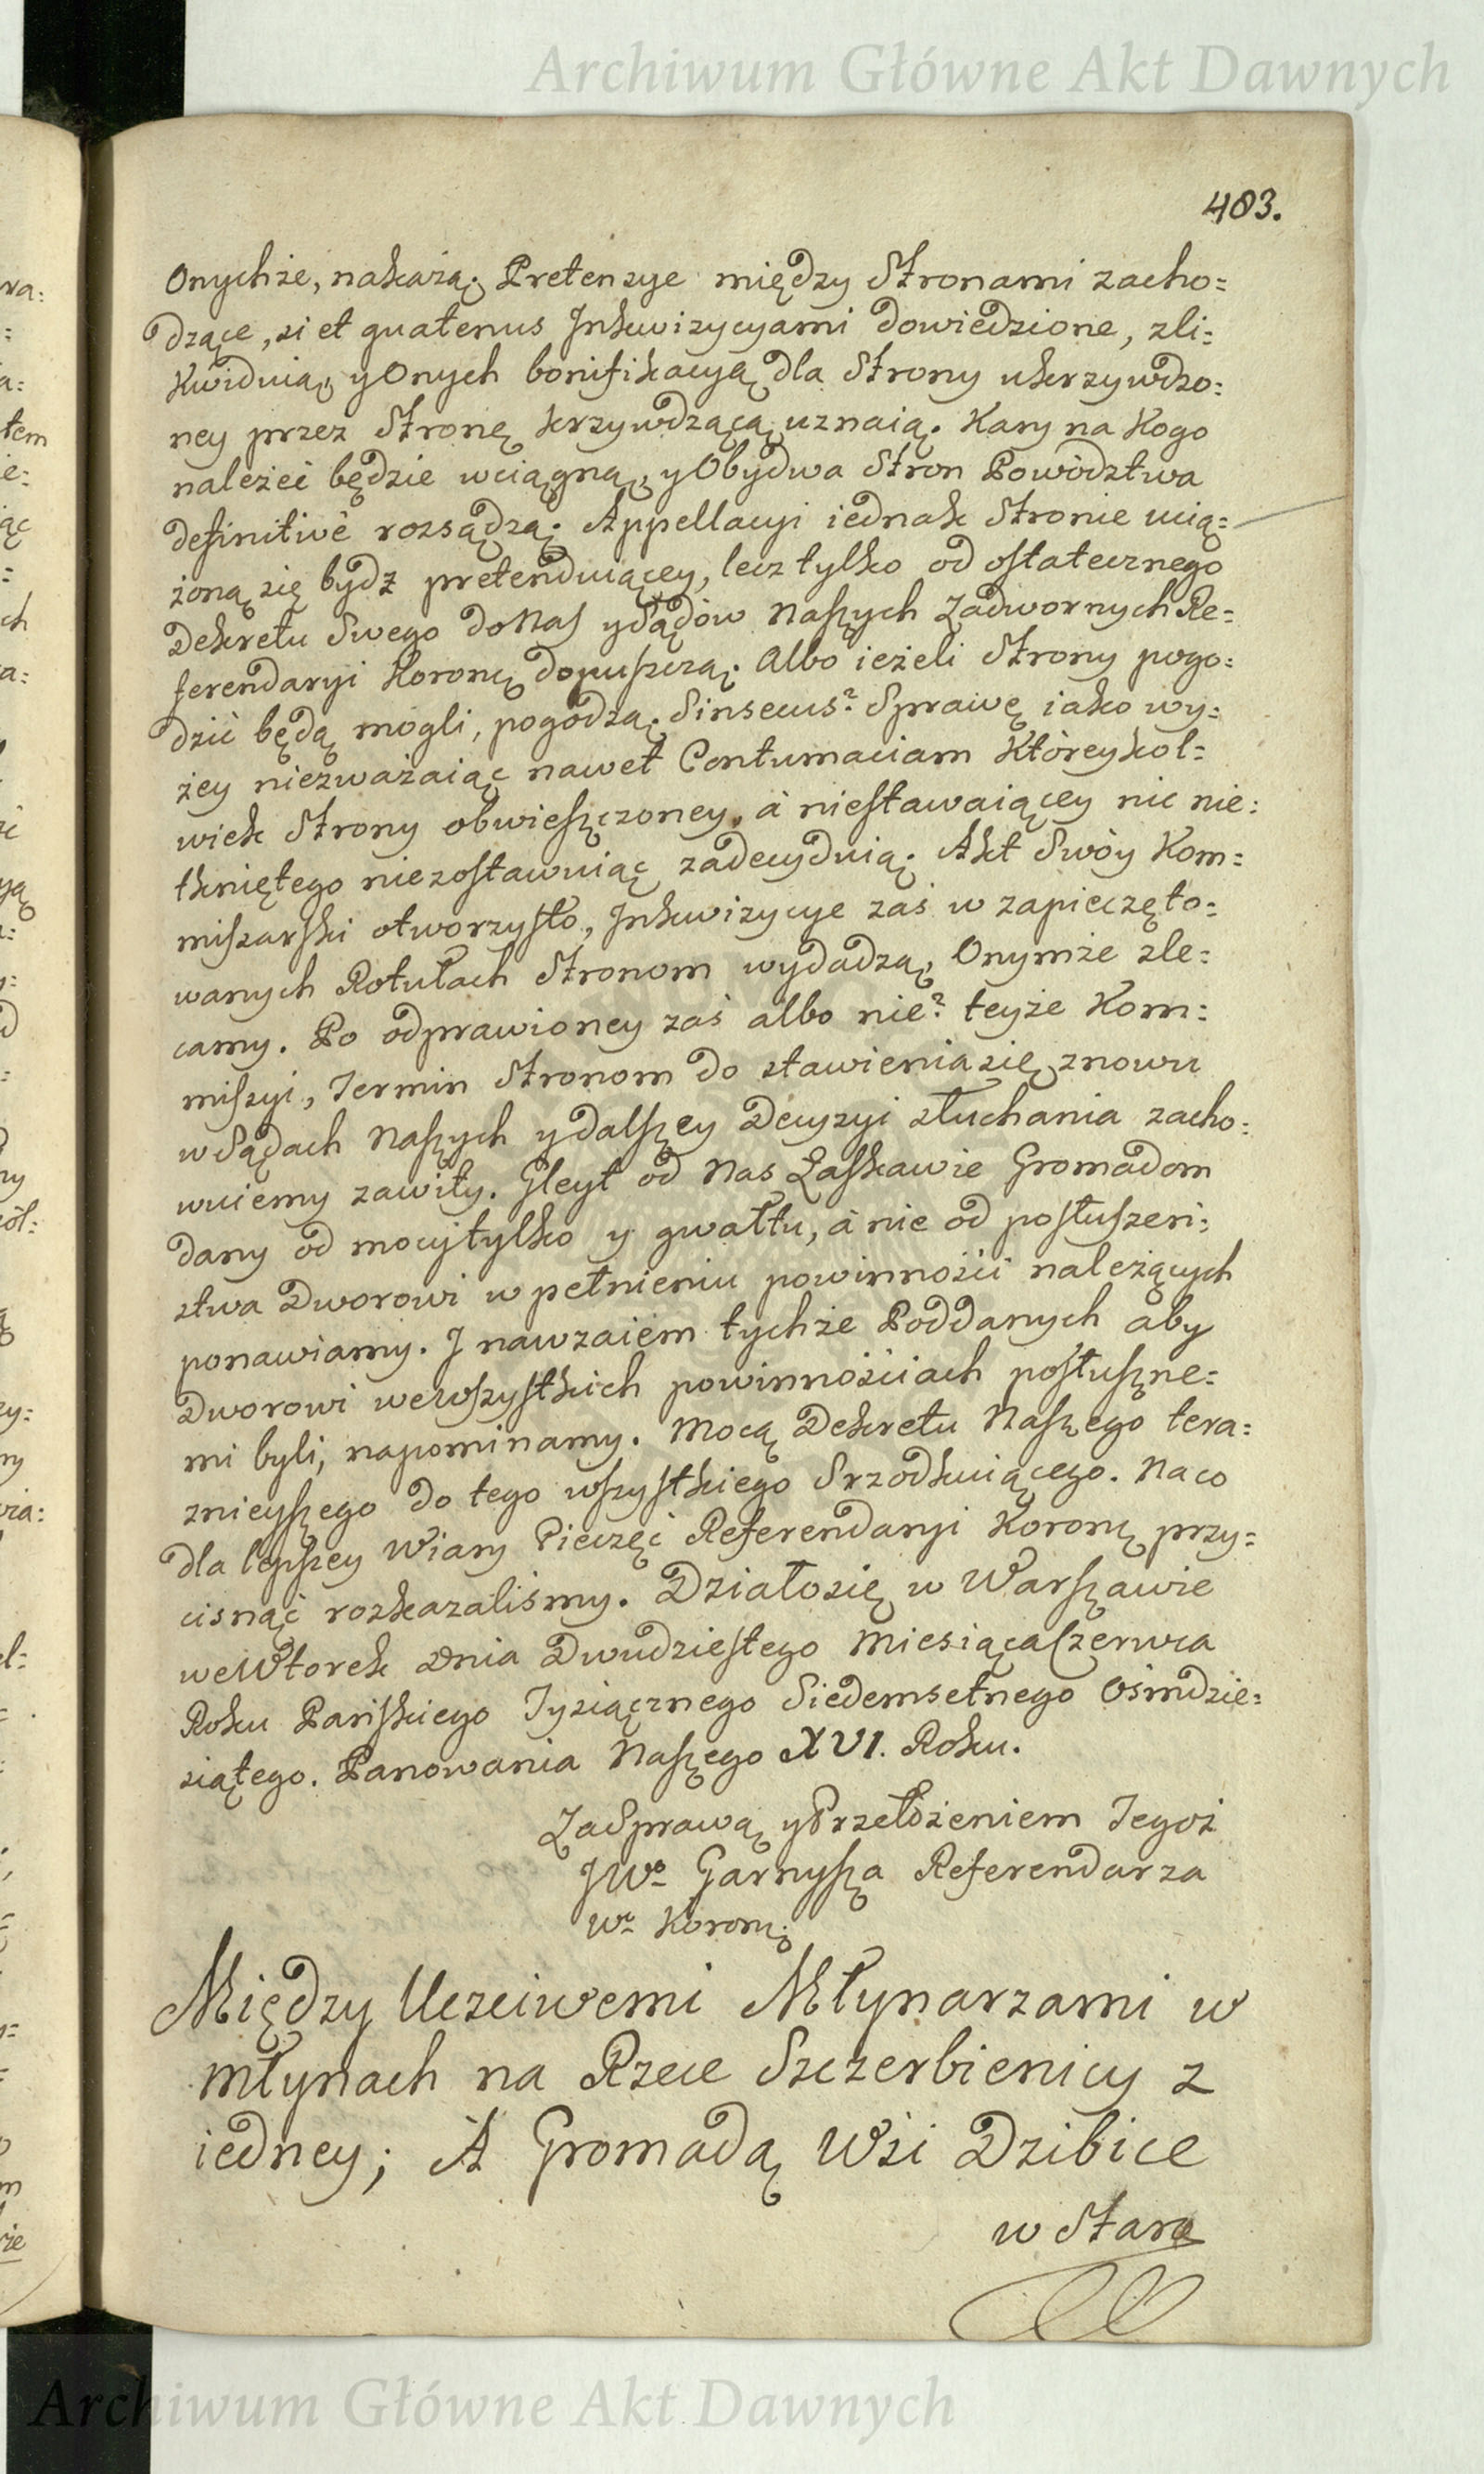 Archiwum Główne Akt Dawnych
403.
Onychże, nakażą. Pretensye między Stronami zacho=
dzące, si et quatenus Jnkwizycyami dowiedzione, zli=
kwiduią, y Onych bonifikacyą dla Strony ukrzywdzo=
ney przez Stronę krzywdzącą uznaią. Kary na Kogo
należeć będzie wciągną, y Obydwa Stron Powodztwa
definitivè rozsądzą. Appellacyi iednak Stronie ucią=
żoną się bydź pretenduiącey, lecz tylko od ostatecznego
Dekretu Swego do Nas y Sądów Naszych Zadwornych Re=
ferendaryi Koronę dopuszczą. Albo ieżeli Strony pogo=
dzić będą mogli, pogodzą. Sinsecus? Sprawę iako wy=
żey niezważaiąc nawet Contumaciam Którey kol=
wiek Strony obwieszczoney, à niestawaiącey nic nie=
tkniętego niezostawuiąc zadecyduią. Akt Swóy Kom=
miszarski otworzysto, Jnkwizycye zaś w zapieczęto=
wanych Rotułach Stronom wydadzą, Onymże zle=
camy. Po odprawioney zaś albo nie? teyże Kom=
miszyi, Termin Stronom do stawienia się znowu
w Sądach Naszych y dalszey Decyzyi słuchania zacho=
wuiemy zawity. Gleyt od Nas Łaskawie Gromadom
dany od mocy tylko y gwałtu, à nie od posłuszeń=
stwa Dworowi w pełnieniu powinności należących
ponawiamy. J nawzaiem tychże Poddanych aby
Dworowi we wszystkich powinnościach posłuszne=
mi byli, napominamy. Mocą Dekretu Naszego tera=
znieyszego do tego wszystkiego Srzodkuiącego. Na co
dla lepszey Wiary Pieczęć Referendaryi Koronę przy=
cisnąć rozkazaliśmy. Działo się w Warszawie
we Wtorek Dnia Dwudziestego Miesiąca Czerwca
Roku Pańskiego Tysiącznego Siedemsetnego Ośmdzie=
siątego. Panowania Naszego XVI. Roku.
Za Sprawą y Przełożeniem Tegoż
JWo Garnysza Referendarza
Wo Koronę
Między Uczciwemi Młynarzami w
młynach na Rzece Szczerbienicy z
iedney; A Gromadą Wsi Dzibice
w Staro
Archiwum Główne Akt Dawnych